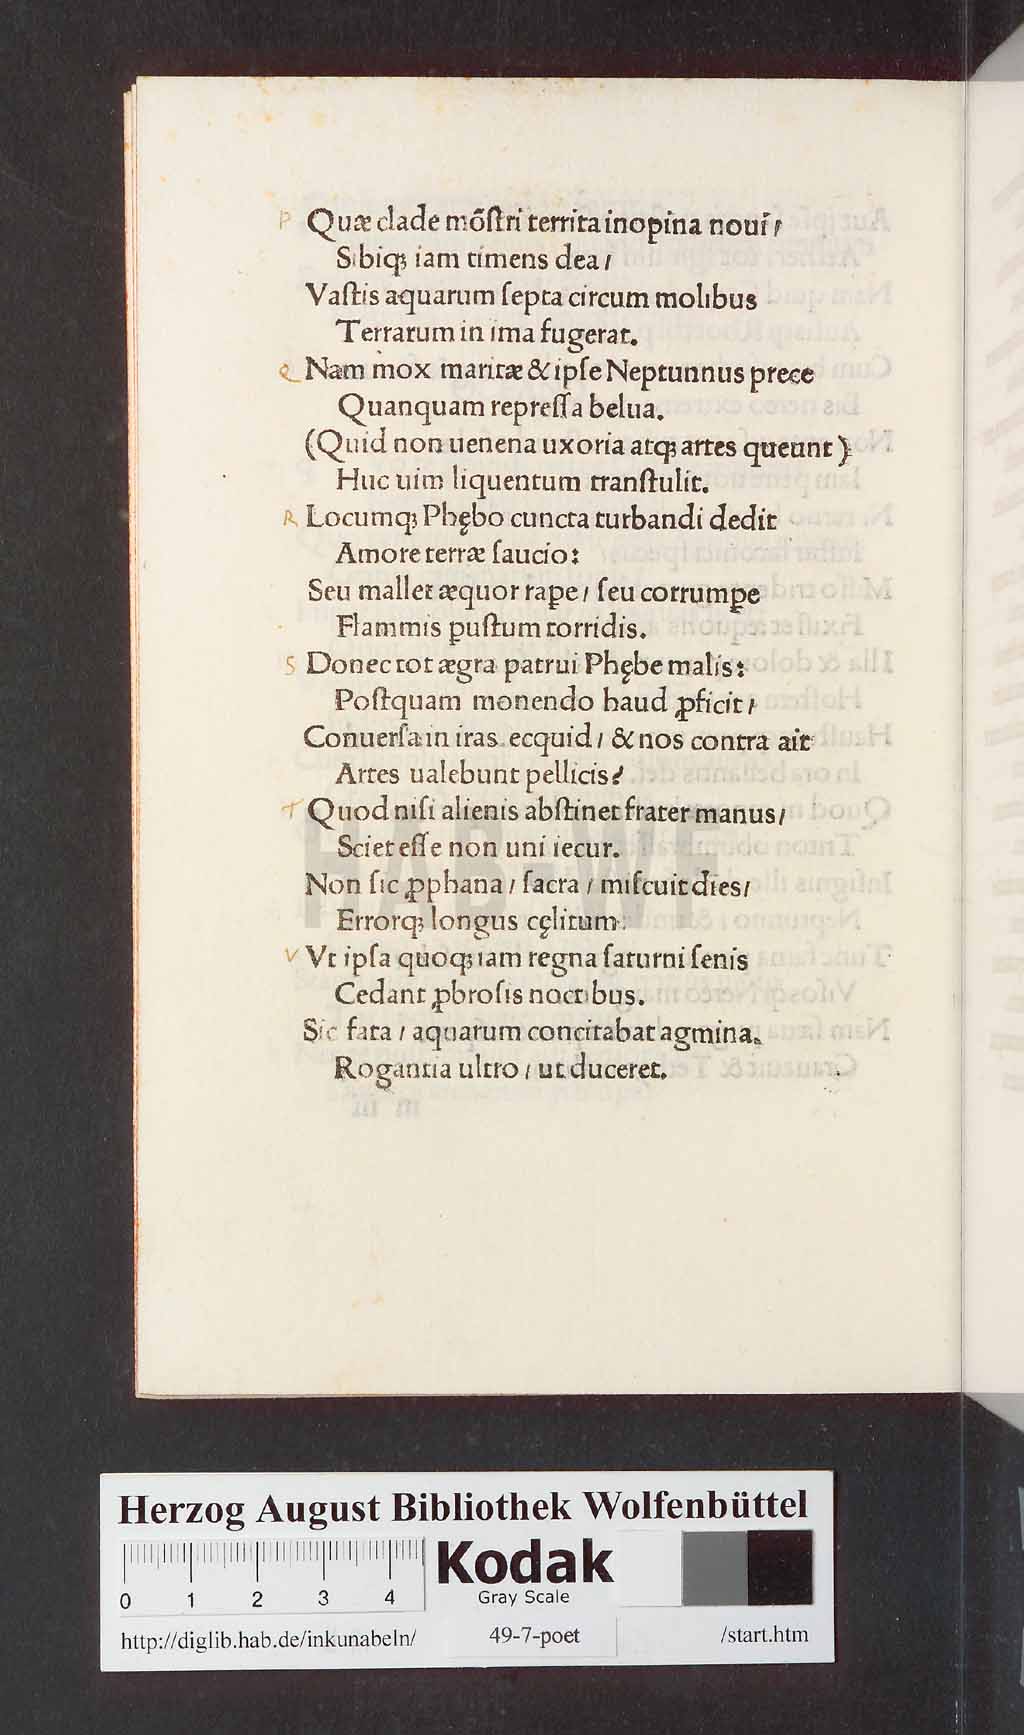 P Quæ clade mõſtri territa inopina noui /
Sibiqꝫ iam timens dea /
Vaſtis aquarum ſepta circum molibus
Terrarum in ima fugerat.
Q Nam mox maritæ & ipſe Neptunnus prece
Quanquam repreſſa belua.
(Quid non uenena uxoria atqꝫ artes queunt)
Huc uim liquentum tranſtulit.
R Locumqꝫ Phębo cuncta turbandi dedit
Amore terræ ſaucio:
Seu mallet æquor rape / ſeu corrumpe
Flammis puſtum torridis.
S Donec tot ægra patrui Phębe malis:
Poſtquam monendo haud ꝓficit /
Conuerſa in iras ecquid / & nos contra ait
Artes ualebunt pellicis?
T Quod niſi alienis abſtinet frater manus /
Sciet eſſe non uni iecur.
Non ſic ꝓphana / ſacra / miſcuit dies /
Errorqꝫ longus cęlitum.
V Vt ipſa quoqꝫ iam regna ſaturni ſenis
Cedant ꝓbroſis noctibus.
Sic fata / aquarum concitabat agmina.
Rogantia ultro / ut duceret.
HAB-WF
Herzog August Bibliothek Wolfenbüttel
0 1 2 3 4
Kodak
Gray Scale
http://diglib.hab.de/inkunabeln/ 49-7-poet /start.htm